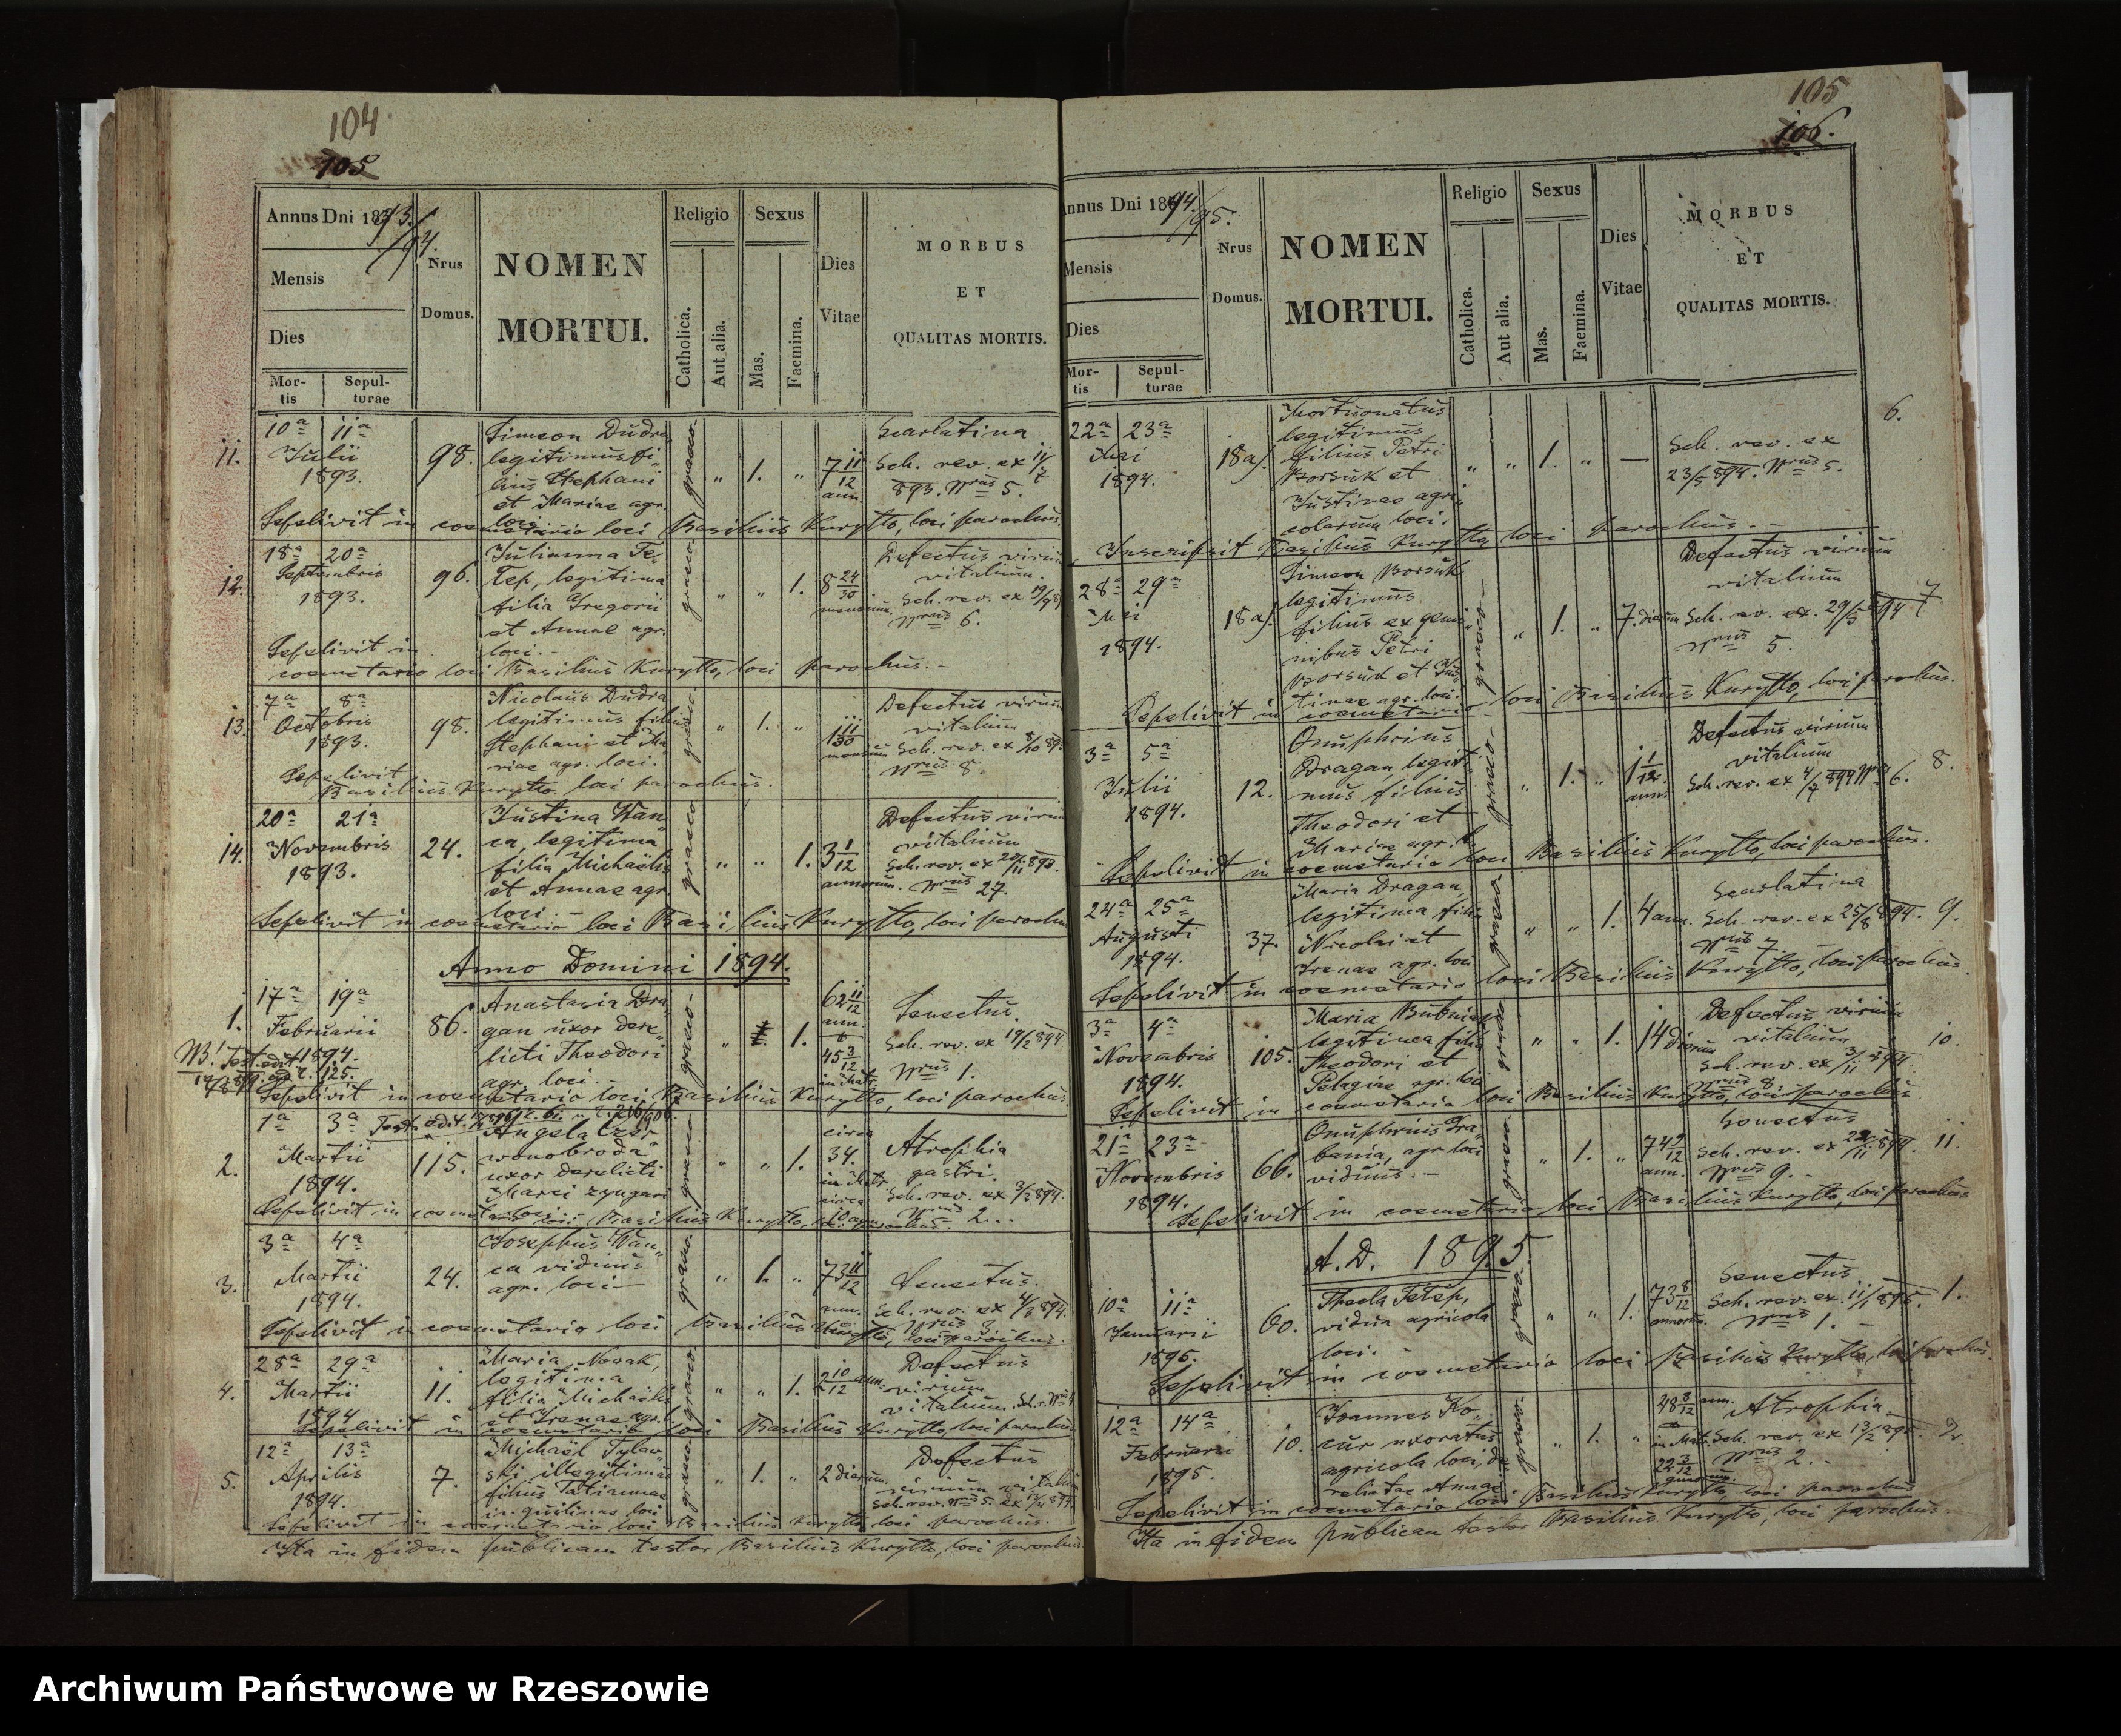 104
105
Annus Dni 1893./94.
Mensis
Dies
Mor-
tis
Sepul-
turae
Nrus
Domus.
NOMEN
MORTUI.
Religio
Catholica.
Aut alia.
Sexus
Mas.
Faemina.
Dies
Vitae
MORBUS
ET
QUALITAS MORTIS.
11.
10a 11a
Julii
1893.
98.
Simeon Dudra
legitimus fi-
lius Stephani
et Mariae agr.
loci
graeco
" 1. "
7 11/12
ann.
Scarlatina
Sch. rev. ex 11/7
893. Nrus 5.
Sepelivit in coemetario loci Basilius Kurytto, loci parochus.
12.
18a 20a
Septembris
1893.
96.
Julianna Te-
tep, legitima
filia Gregorii
et Annae agr.
loci.
graeco
" " 1.
8 24/30
mensium.
Defectus virium
vitalium.
Sch. rev. ex 19/9 89
Nrus 6.
Sepelivit in
coemetario loci Basilius Kurytto, loci parochus.
13.
7a 8a
Octobris
1893.
98.
Nicolaus Dudra
legitimus filius
Stephani et Ma-
riae agr. loci.
graeco
" 1. "
1 11/30
mensium
Defectus virium
vitalium
Sch. rev. ex 8/10 89
Nrus 8.
Sepelivit
Basilius Kurytto loci parochus.
14.
20a 21a
Novembris
1893.
24.
Justina Wan-
ca, legitima
filia Michaelis
et Annae agr.
loci.
graeco
" " 1.
3 1/12
annorum.
Defectus virium
vitalium
Sch. rev. ex 20/11 893.
Nrus 27.
Sepelivit in coemetario loci Basilius Kurytto, loci parochus
Anno Domini 1894.
1.
17a 19a
Februarii
1894.
86.
Anastasia Dra-
gan uxor dere-
licti Theodori
agr. loci.
graeco
" 1.
62 11/12
ann.
45 3/12
in Matr.
Senectus.
Sch. rev. ex 19/2 894
Nrus 1.
NB! Test. edit.
Sepelivit in coemetario loci Basilius Kurytto, loci parochus.
2.
1a 3a
Test. edit.
Martii
1894.
115.
Angela Czer-
wonobroda
uxor derelicti
Marci
loci
graeco
" " 1.
circa
34.
in Matr.
circa
Atrophia
gastri.
Sch. rev. ex 3/3 894.
Nrus 2.
Sepelivit in coemetario loci Basilius Kurytto, loci parochus.
3.
3a 4a
Martii
1894.
24.
Josephus Wan-
ca viduus
agr. loci
graeco
" 1. "
73 11/12
ann.
Senectus.
Sch. rev. ex 4/3 894.
Nrus 3.
Sepelivit in coemetario loci Basilius Kurytto, loci parochus.
4.
28a 29a
Martii
1894
11.
Maria Nowak,
legitima
filia Michaelis
et Irenae agr. l.
graeco
" " 1.
2 10/12 ann.
Defectus
virium
vitalium. Sch. r. Nrus 4
Sepelivit in coemetario loci Basilius Kurytto, loci parochus
5.
12a 13a
Aprilis
1894.
7.
Michael Tylaw-
ski illegitimus
filius Tatiannae
inquilinae loci
graeco
" 1. "
2 dierum
Defectus
virium vitalium
Sch. rev. Nrus 5. ex 13/4 894.
Sepelivit in coemetario loci Basilius Kurytto loci parochus.
Ita in fidem publicam testor Basilius Kurytto, loci parochus
105
106.
Annus Dni 1894./95.
Mensis
Dies
Mor-
tis
Sepul-
turae
Nrus
Domus.
NOMEN
MORTUI.
Religio
Catholica.
Aut alia.
Sexus
Mas.
Faemina.
Dies
Vitae
MORBUS
ET
QUALITAS MORTIS.
22a 23a
Mai
1894.
18a).
Mortuonatus
legitimus
filius Petri
Borsuk et
Justinae agri-
colarum loci.
" " 1. " —
Sch. rev. ex
23/5 894. Nrus 5.
6.
Inscripsit Basilius Kurytto loci parochus.
28a 29a
Mai
1894.
18a).
Simeon Borsuk
legitimus
filius ex gemi-
nibus Petri
Borsuk et Jus-
tinae agr. loci.
graeco
" 1. "
7. dierum
Defectus virium
vitalium
Sch. rev. ex. 29/5 894
Nrus 5.
7
Sepelivit in coemetario loci Basilius Kurytto, loci parochus.
3a 5a
Julii
1894.
12.
Onuphrius
Dragan, legiti-
mus filius
Theodori et
Mariae agr. l.
graeco
" 1. "
1 1/12
ann.
Defectus virium
vitalium
Sch. rev. ex 4/7 894 Nrus 6.
8.
Sepelivit in coemetario loci Basilius Kurytto, loci parochus.
24a 25a
Augusti
1894.
37.
Maria Dragan,
legitima filia
Nicolai et
Irenae agr. loci
graeco
" " 1.
4 ann.
Scarlatina
Sch. rev. ex 25/8 894.
Nrus 7
9.
Sepelivit in coemetario loci Basilius Kurytto, loci parochus.
3a 4a
Novembris
1894.
105.
Maria Bubniak
legitima filia
Theodori et
Pelagiae agr. loci
graeco
" " 1.
14 dierum
Defectus virium
vitalium
Sch. rev. ex 3/11 894
Nrus 8
10.
Sepelivit in coemetario loci Basilius Kurytto, loci parochus
21a 23a
Novembris
1894.
66.
Onuphrius Gra-
bania, agr. loci
viduus.
graeco
" 1. "
ann.
Senectus
Sch. rev. ex 894.
Nrus 9.
11.
Sepelivit in coemetario loci Basilius Kurytto, loci parochus
A.D. 1895.
10a 11a
Januarii
1895.
60.
Thecla Tetep,
vidua agricola
loci.
graeco
" " 1.
73 8/12
annorum
Senectus
Sch. rev. ex. 11/1 895.
Nrus 1.
1.
Sepelivit in coemetario loci Basilius Kurytto, loci parochus.
12a 14a
Februarii
1895.
10.
Joannes Ko-
cur uxoratus
agricola loci, de
relictae Annae
graeco
" 1. "
48 8/12 ann.
in Matr.
22 3/12
Atrophia.
Sch. rev. ex 13/2 895.
Nrus 2.
2.
Sepelivit in coemetario loci Basilius Kurytto, loci parochus
Ita in fidem publicam testor Basilius Kurytto, loci parochus.
Archiwum Państwowe w Rzeszowie